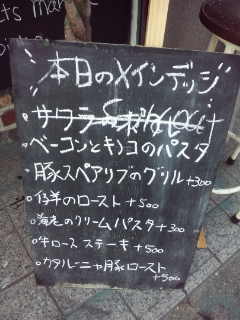 本日のメインデッシ
・ベーコンとキノコのパスタ
・豚スペアリブのグリル+300
。仔羊のロースト +500
。海老のクリームパスタ+300
。牛ロース ステーキ +500
。カタルーニャ豚ロースト
+500